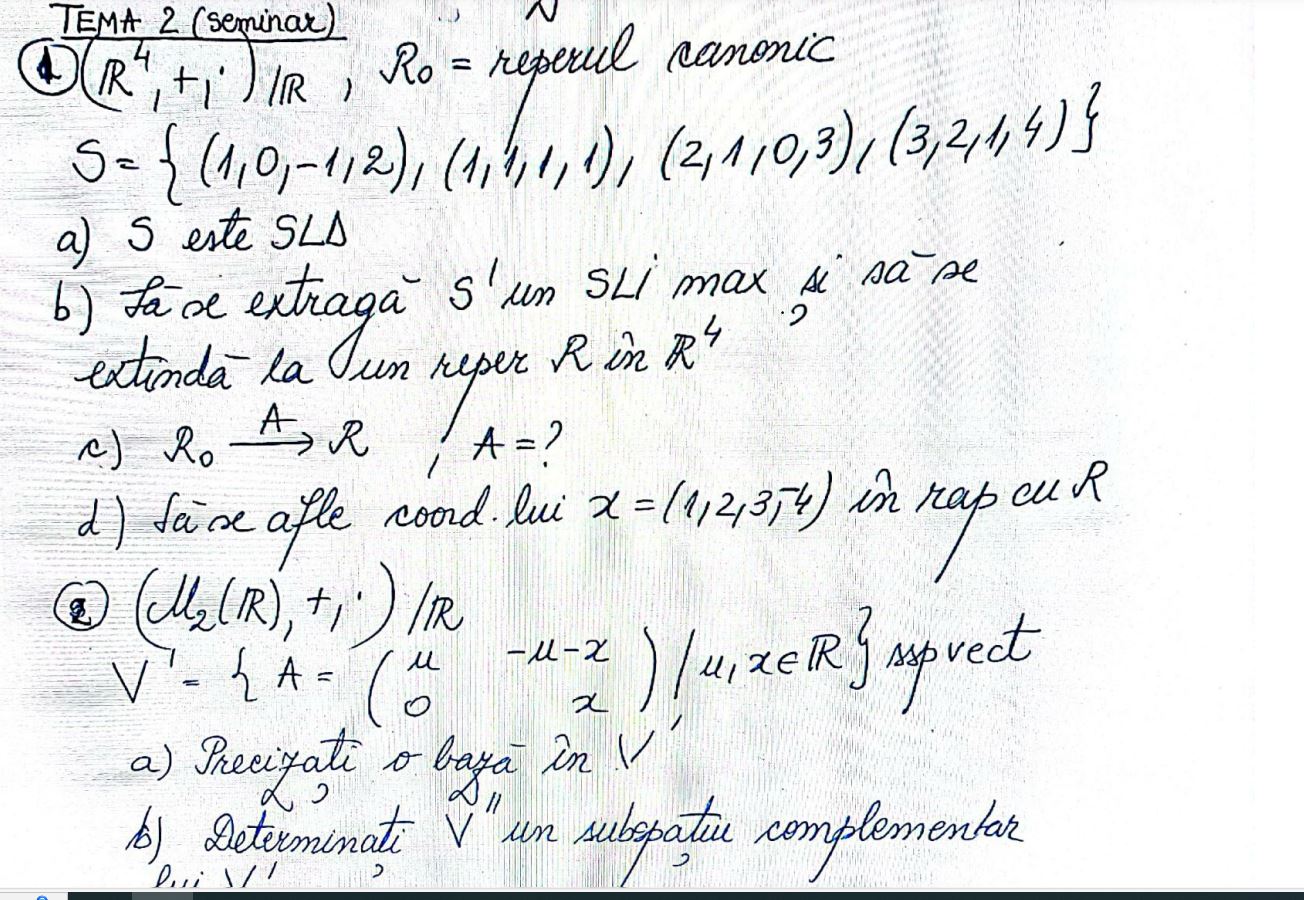 TEMA 2 (seminar)
① (ℝ⁴, +, ·)/ℝ , R₀ = reperul canonic
S = { (1,0,-1,2), (1,1,1,1), (2,1,0,3), (3,2,1,4) }
a) S este SLD
b) Să se extragă S' un SLI max și să se
extindă la un reper R în ℝ⁴
c) R₀ —A→ R , A = ?
d) Să se afle coord. lui x = (1,2,3,-4) în rap cu R
② (M₂(ℝ), +, ·)/ℝ
V' = { A = ( u -u-x
0 x ) / u, x ∈ ℝ } ssp vect
a) Precizați o bază în V'
b) Determinați V'' un subspațiu complementar
lui V'